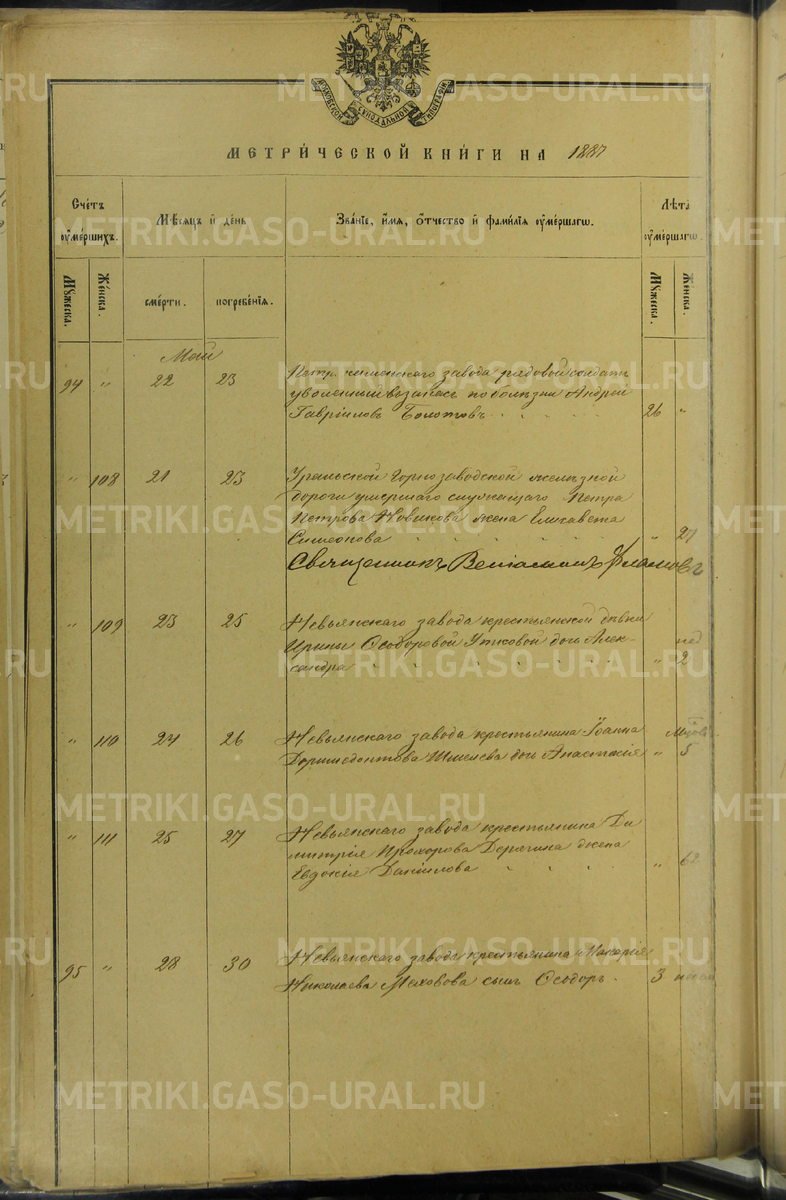 МОСКОВСКОЙ СѴНОДАЛЬНОЙ ТИПОГРАФІИ
МЕТРИ́ЧЕСКОЙ КНИ́ГИ НА 1887
Сче́тъ ᲂу҆ме́ршихъ.
Мѣ́сяцъ и҆ де́нь
Зва́нїе, и҆́мя, ѻ҆́тчество и҆ фами́лїя ᲂу҆ме́ршагѡ.
Лѣ́та ᲂу҆ме́ршагѡ.
Мꙋ́жеска.
Же́нска.
сме́рти.
погребе́нїя.
Мꙋ́жеска.
Же́нска.
Май
94 " 22 23 Петрокаменскаго завода рядовой солдатъ
уволенный въ запасъ по болѣзни Андрей
Гавріиловъ Болотовъ 26 "
" 108 21 23 Уральской Горнозаводской желѣзной
дороги умершаго служащаго Петра
Петрова Новикова жена Елисавета
Симеонова " 27
Священникъ Веніаминъ
" 109 23 25 Невьянскаго завода крестьянской дѣвки
Ирины Ѳеодоровой Утковой дочь Алек-
сандра " нед 2
" 110 24 26 Невьянскаго завода крестьянина Іоанна
Доримедонтова Шмелева дочь Анастасія " Мѣсяц 5
" 111 25 27 Невьянскаго завода крестьянина Ди
митрія Прохорова Дерягина жена
Евдокія Даніилова " 62
95 " 28 30 Невьянскаго завода крестьянина Макарія
Николаева Меховова сынъ Ѳеодоръ 3
METRIKI.GASO-URAL.RU